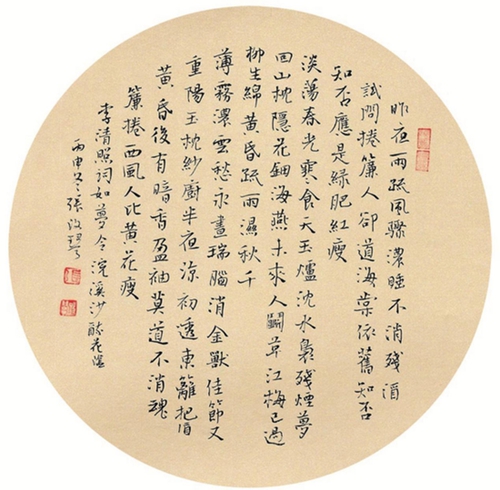 昨夜雨疏風驟濃睡不消殘酒
試問捲簾人卻道海棠依舊知否
知否應是綠肥紅瘦
淡蕩春光寒食天玉爐沈水裊殘煙夢
回山枕隱花鈿海燕未來人鬭草江梅已過
柳生綿黃昏疏雨濕秋千
薄霧濃雲愁永晝瑞腦消金獸佳節又
重陽玉枕紗廚半夜涼初透東籬把酒
黃昏後有暗香盈袖莫道不消魂
簾捲西風人比黃花瘦
李清照詞如夢令浣溪沙醉花陰
丙申冬張改琴